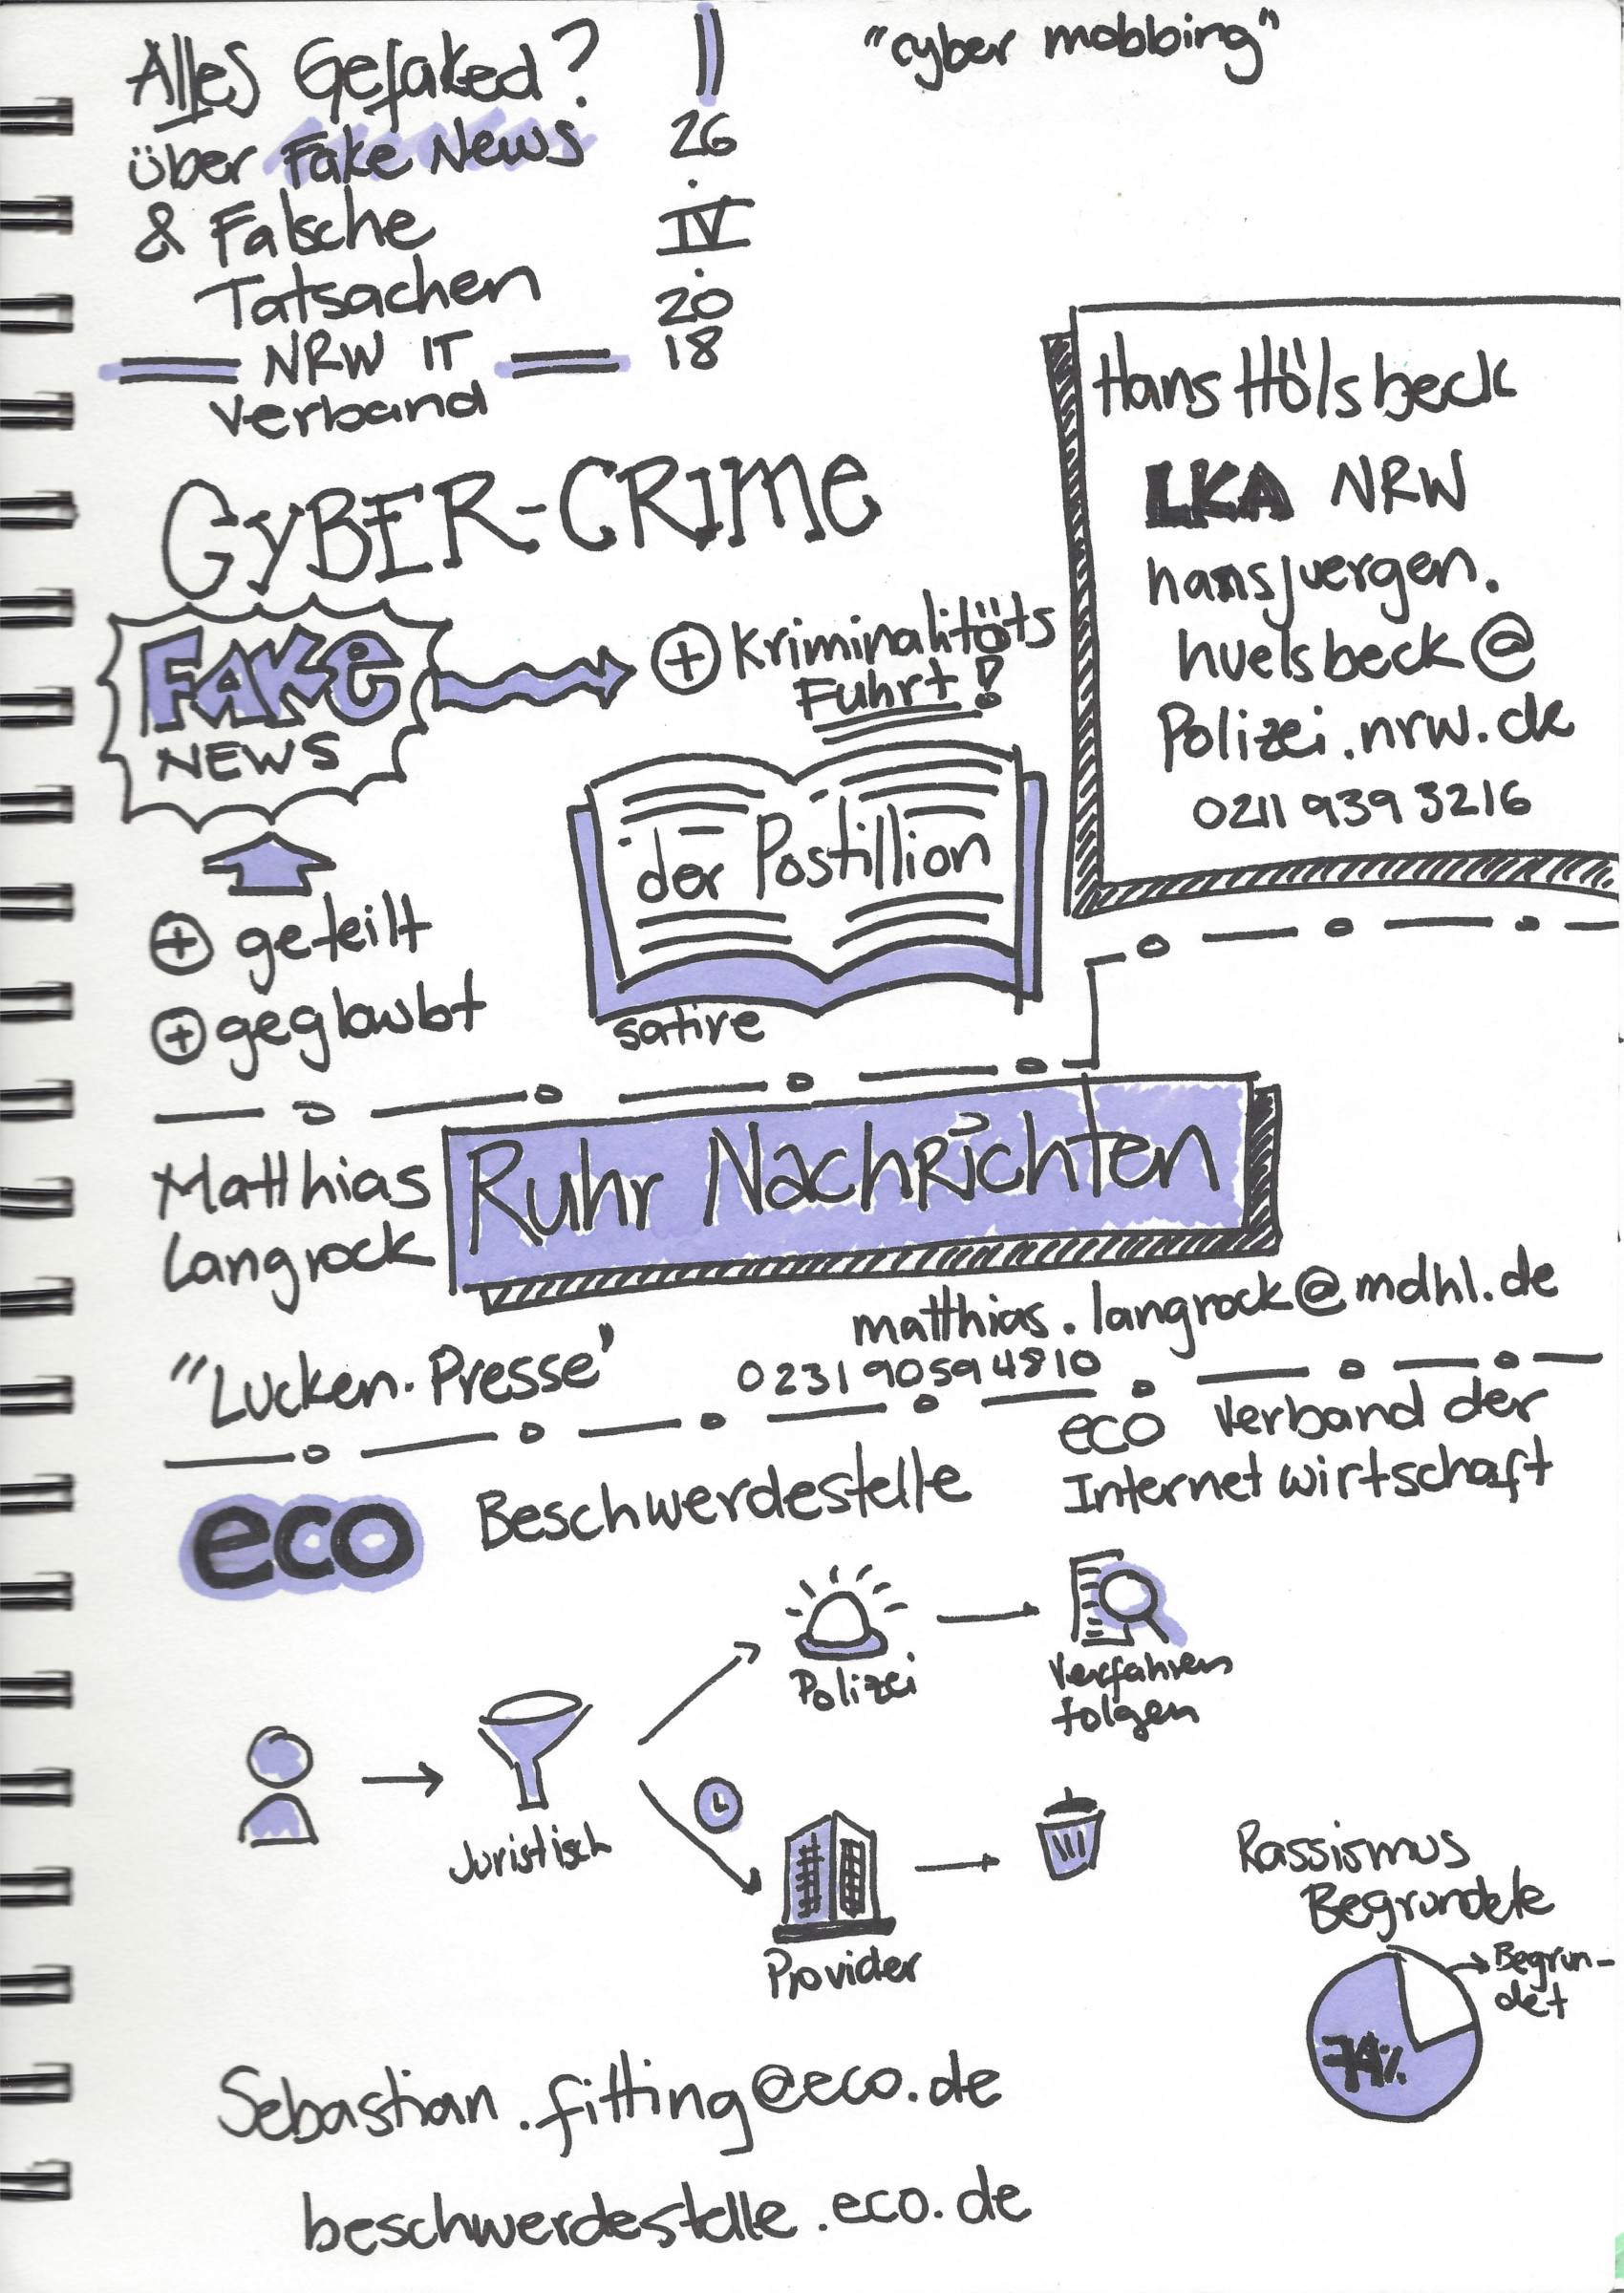 Alles Gefaked?
über Fake News
& Falsche
Tatsachen
NRW IT
Verband
26
.
IV
.
20
18
"cyber mobbing"
Hans Hölsbeck
LKA NRW
hansjuergen.
huelsbeck@
Polizei.nrw.de
0211 939 3216
CYBER-CRIME
FAKE
NEWS
+ Kriminalitäts
Fuhrt!
der Postillion
satire
+ geteilt
+ geglaubt
Matthias
Langrock
Ruhr Nachrichten
matthias.langrock@mdhl.de
0231 9059 4810
"Lucken-Presse"
eco Beschwerdestelle
eco Verband der
Internetwirtschaft
Polizei
Verfahren
folgen
Juristisch
Provider
Rassismus
Begrundete
Begrun-
det
74%
Sebastian.fitting@eco.de
beschwerdestelle.eco.de